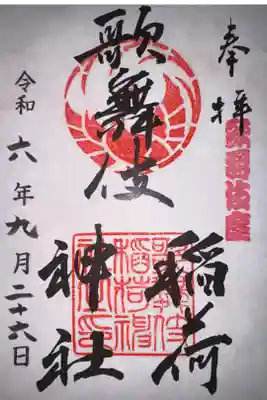 奉拝
歌舞伎座
歌舞伎
稲荷
神社
令和六年九月二十六日